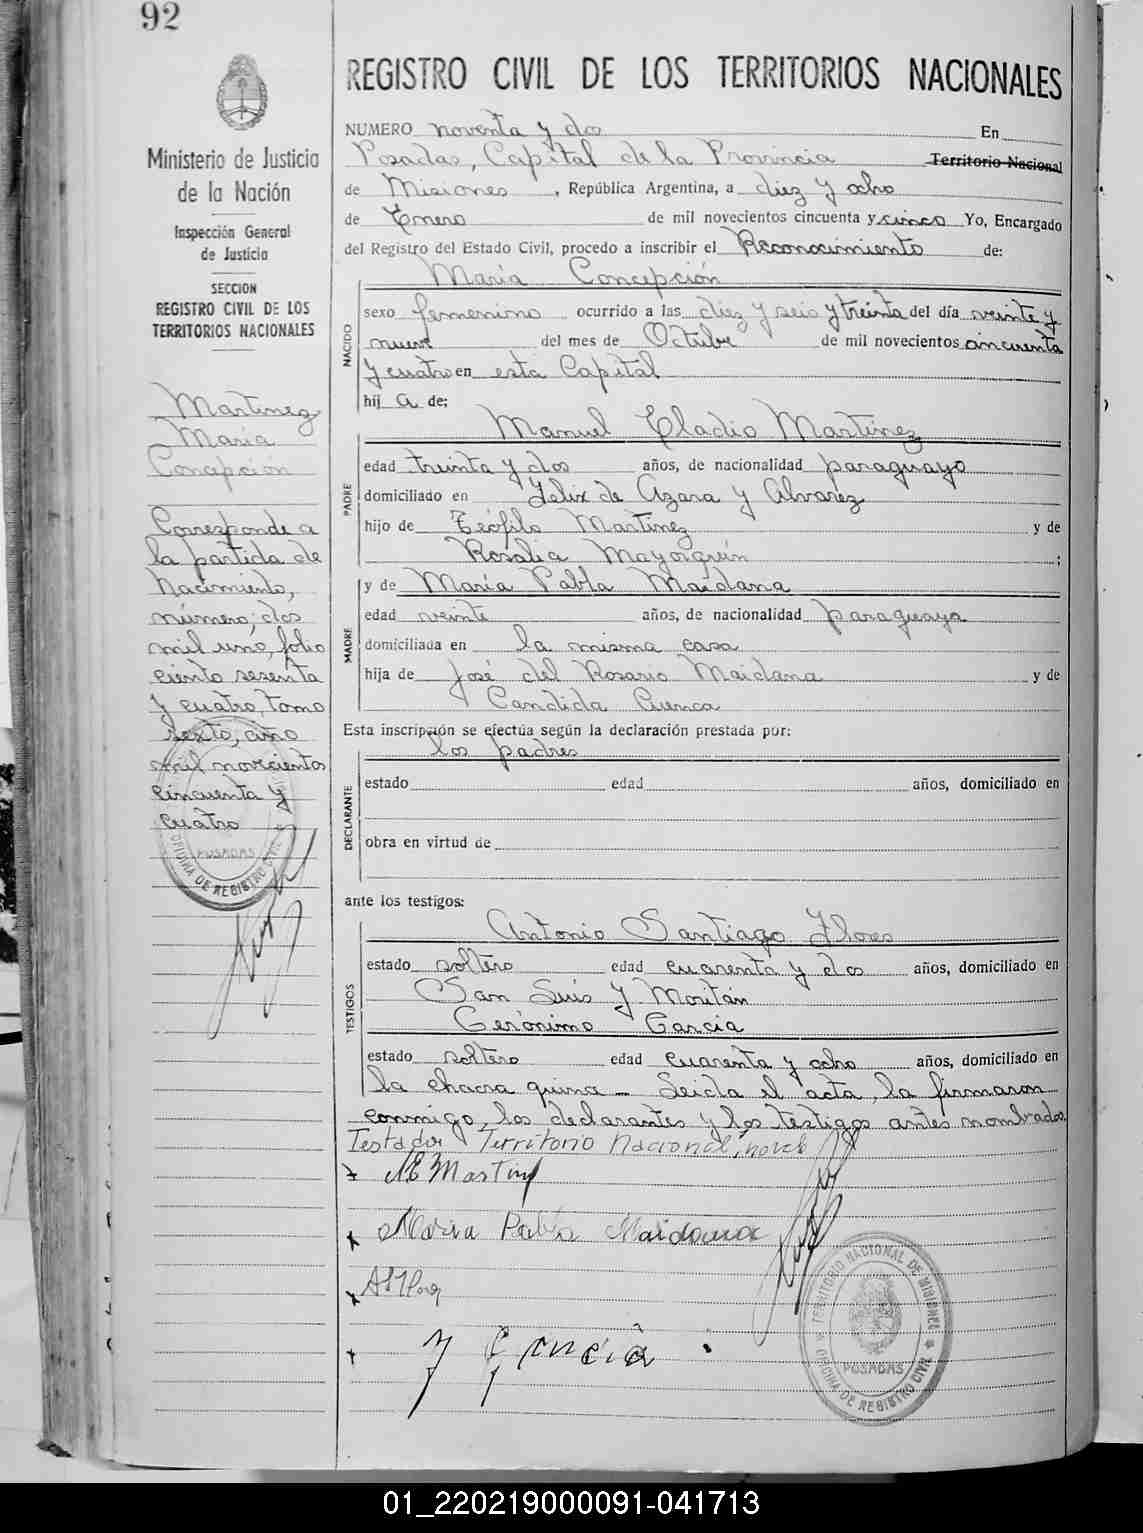 92
REGISTRO CIVIL DE LOS TERRITORIOS NACIONALES
Ministerio de Justicia
de la Nación
Inspección General
de Justicia
SECCION
REGISTRO CIVIL DE LOS
TERRITORIOS NACIONALES
Martinez
María
Concepción
Corresponde a
la partida de
Nacimiento,
número, dos
mil uno, folio
ciento sesenta
y cuatro, tomo
sexto, año
mil novecientos
cincuenta y
cuatro
POSADAS
OFICINA DE REGISTRO CIVIL
NUMERO noventa y dos En
Posadas, Capital de la Provincia Territorio Nacional
de Misiones, República Argentina, a diez y ocho
de Enero de mil novecientos cincuenta y cinco Yo, Encargado
del Registro del Estado Civil, procedo a inscribir el Reconocimiento de:
María Concepción
NACIDO
sexo femenino ocurrido a las diez y seis y treinta del día veinte y
nueve del mes de Octubre de mil novecientos cincuenta
y cuatro en esta Capital
hij a de:
Manuel Eladio Martínez
PADRE
edad treinta y dos años, de nacionalidad paraguayo
domiciliado en Felix de Azara y Alvarez
hijo de Teófilo Martinez y de
Rosalia ;
y de María Pabla Maidana
MADRE
edad veinte años, de nacionalidad paraguaya
domiciliada en la misma casa
hija de José del Rosario Maidana y de
Candida Cuenca
Esta inscripción se efectúa según la declaración prestada por:
los padres
DECLARANTE
estado edad años, domiciliado en
obra en virtud de
ante los testigos:
TESTIGOS
Antonio Santiago Flores
estado soltero edad cuarenta y dos años, domiciliado en
San Luis y
Gerónimo Garcia
estado soltero edad cuarenta y ocho años, domiciliado en
la chacra quina Leida el acta, la firmaron
conmigo, los declarantes y los testigos antes nombrados.
Testador Territorio Nacional,
M E Martin
Maria Pabla Maidana
A S Flores
J Garcia
TERRITORIO NACIONAL DE MISIONES
POSADAS
OFICINA DE REGISTRO CIVIL
01_220219000091-041713